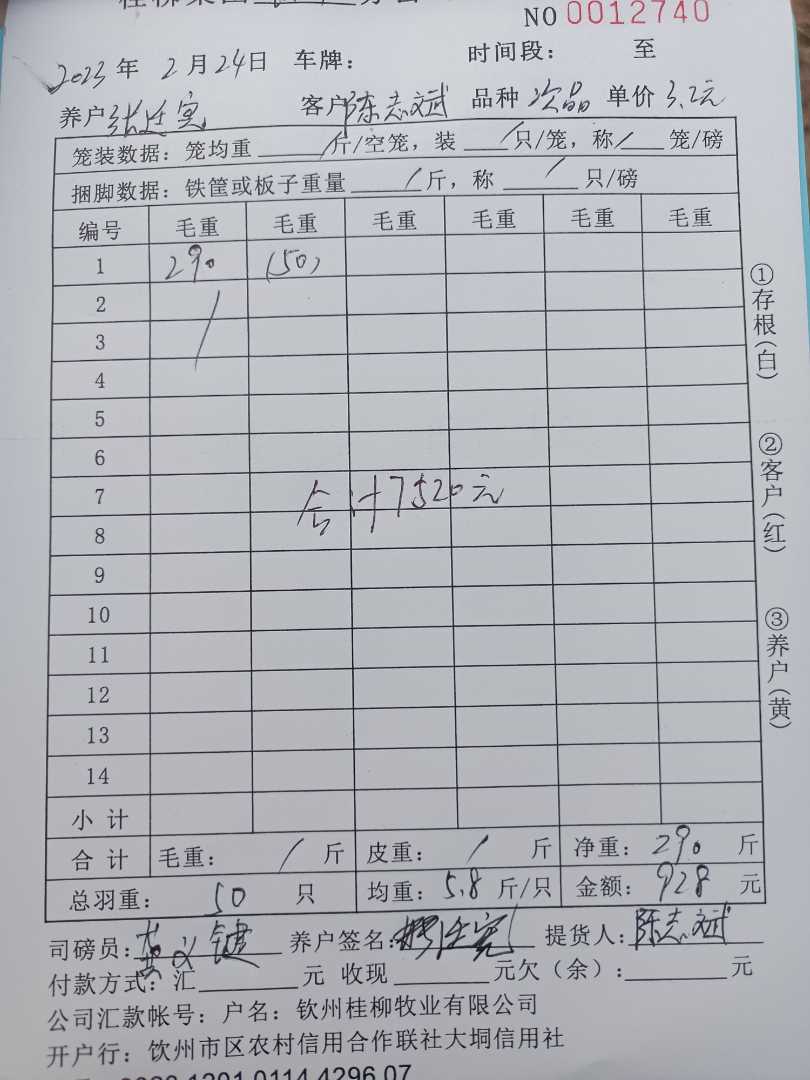 NO 0012740
2023 年 2 月 24 日 车牌： 时间段： 至
养户 张廷宽 客户 陈志斌 品种 次品 单价 3.2元
笼装数据：笼均重 / 斤/空笼，装 / 只/笼，称 / 笼/磅
捆脚数据：铁筐或板子重量 / 斤，称 / 只/磅
编号 毛重 毛重 毛重 毛重 毛重 毛重
1 290 (50)
2
3
4
5
6
7
合计7520元
8
9
10
11
12
13
14
小计
合计 毛重： / 斤 皮重： / 斤 净重：290 斤
总羽重： 50 只 均重：5.8 斤/只 金额：928 元
司磅员： 黄义键 养户签名： 提货人：陈志斌
付款方式：汇 元 收现 元欠（余）： 元
公司汇款帐号：户名：钦州桂柳牧业有限公司
开户行：饮州市区农村信用合作联社大垌信用社
①存根(白)
②客户(红)
③养户(黄)